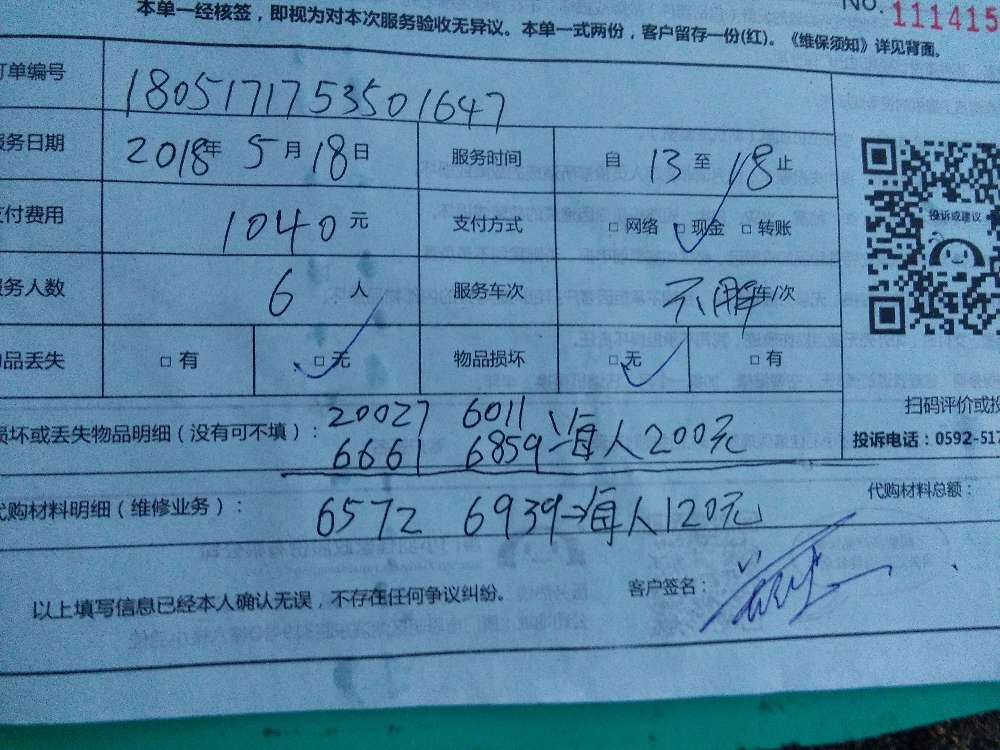 本单一经核签，即视为对本次服务验收无异议。本单一式两份，客户留存一份(红)。《维保须知》详见背面。
No. 111415
订单编号 1805171753501647
服务日期 2018年 5月18日 服务时间 自 13 至 18 止
支付费用 1040 元 支付方式 □ 网络 □ 现金 □ 转账
投诉或建议
服务人数 6 人 服务车次 车/次
物品丢失 □ 有 □ 无 物品损坏 □ 无 □ 有
扫码评价或投
投诉电话：0592-517
损坏或丢失物品明细（没有可不填）： 20027 6011
6661 6859 每人200元
代购材料明细（维修业务）： 6572 6939 每人120元
代购材料总额：
以上填写信息已经本人确认无误，不存在任何争议纠纷。 客户签名：